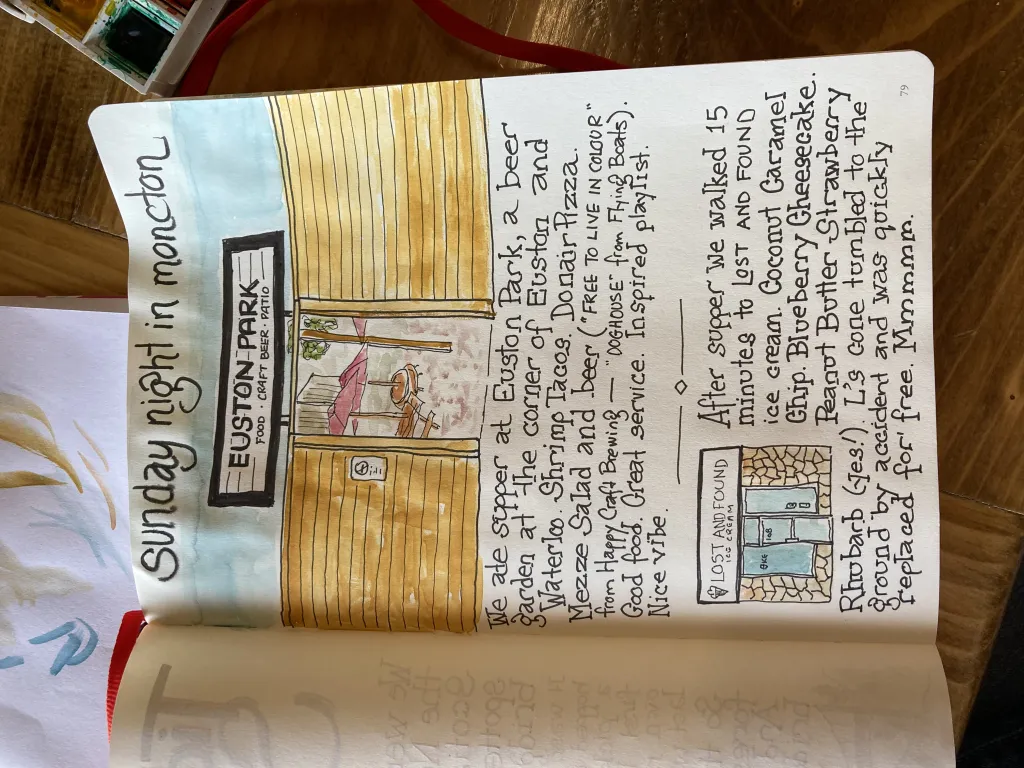 Sunday night in moncton
EUSTON-PARK
FOOD · CRAFT BEER · PATIO
We ate supper at Euston Park, a beer
garden at the corner of Euston and
Waterloo. Shrimp Tacos, Donair Pizza.
Mezze Salad and beer ("FREE TO LIVE IN COLOUR"
from Happy Craft Brewing — "DOGHOUSE" from Flying Boats).
Good food. Great service. Inspired playlist.
Nice vibe.
LOST AND FOUND
ICE CREAM
After supper we walked 15
minutes to LOST AND FOUND
ice cream. Coconut Caramel
Chip. Blueberry Cheesecake.
Peanut Butter Strawberry
Rhubarb (yes!). L's cone tumbled to the
ground by accident and was quickly
replaced for free. Mmmmm.
79